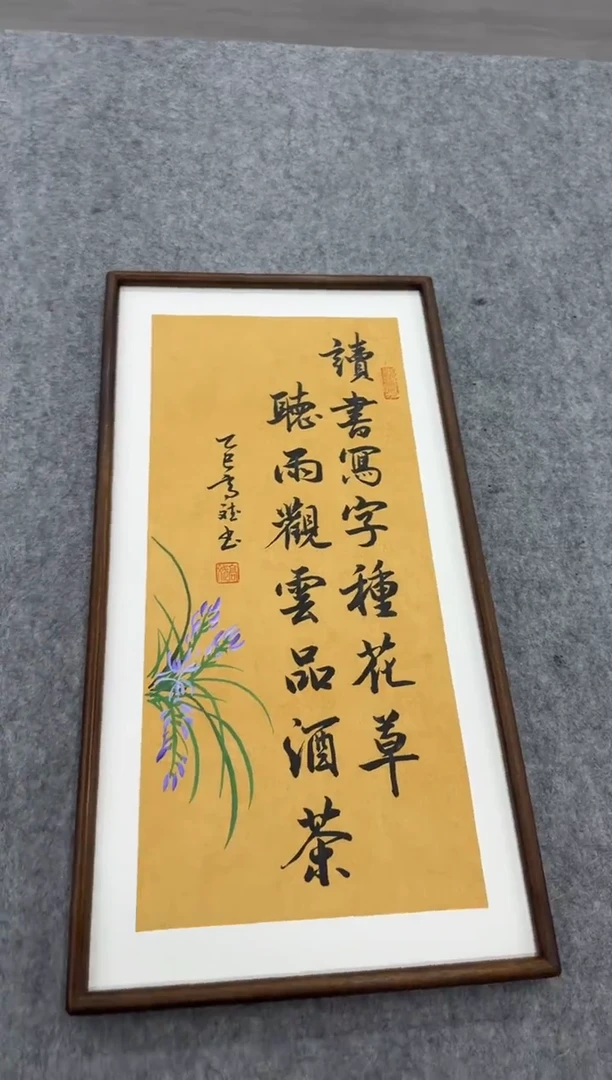 讀書寫字種花草
聽雨觀雲品酒茶
乙巳高斌书